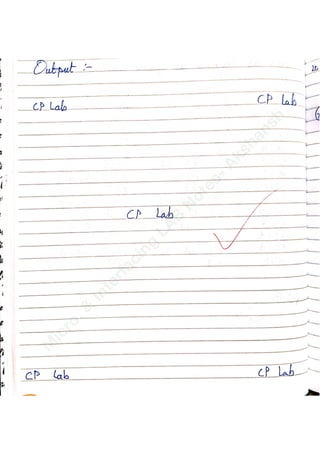 Output :-
CP Lab CP Lab
CP Lab
CP Lab CP Lab
Micro & Interfacing LAB Notes- Akshansh